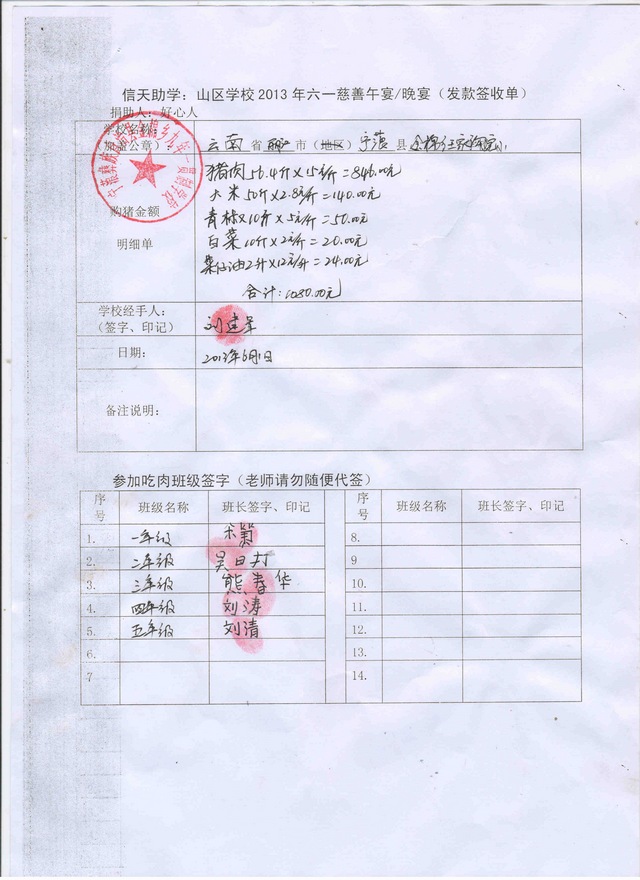 信天助学：山区学校2013年六一慈善午宴/晚宴（发款签收单）
捐助人：好心人
学校名称：
（加盖公章）
云南省丽江市（地区）宁蒗县
购猪金额
明细单
猪肉56.4斤×15元/斤=846.00元
大米50斤×2.8元/斤=140.00元
青椒×10斤×5元/斤=50.00元
白菜10斤×2元/斤=20.00元
菜仔油2斤×12元/斤=24.00元
合计:1080.00元
学校经手人：
（签字、印记）
刘建军
日期：
2013年6月1日
备注说明：
参加吃肉班级签字（老师请勿随便代签）
序号 班级名称 班长签字、印记 序号 班级名称 班长签字、印记
1. 一年级 8.
2. 二年级 吴日 9
3. 三年级 熊春华 10.
4. 四年级 刘涛 11.
5. 五年级 刘清 12.
6. 13.
7 14.